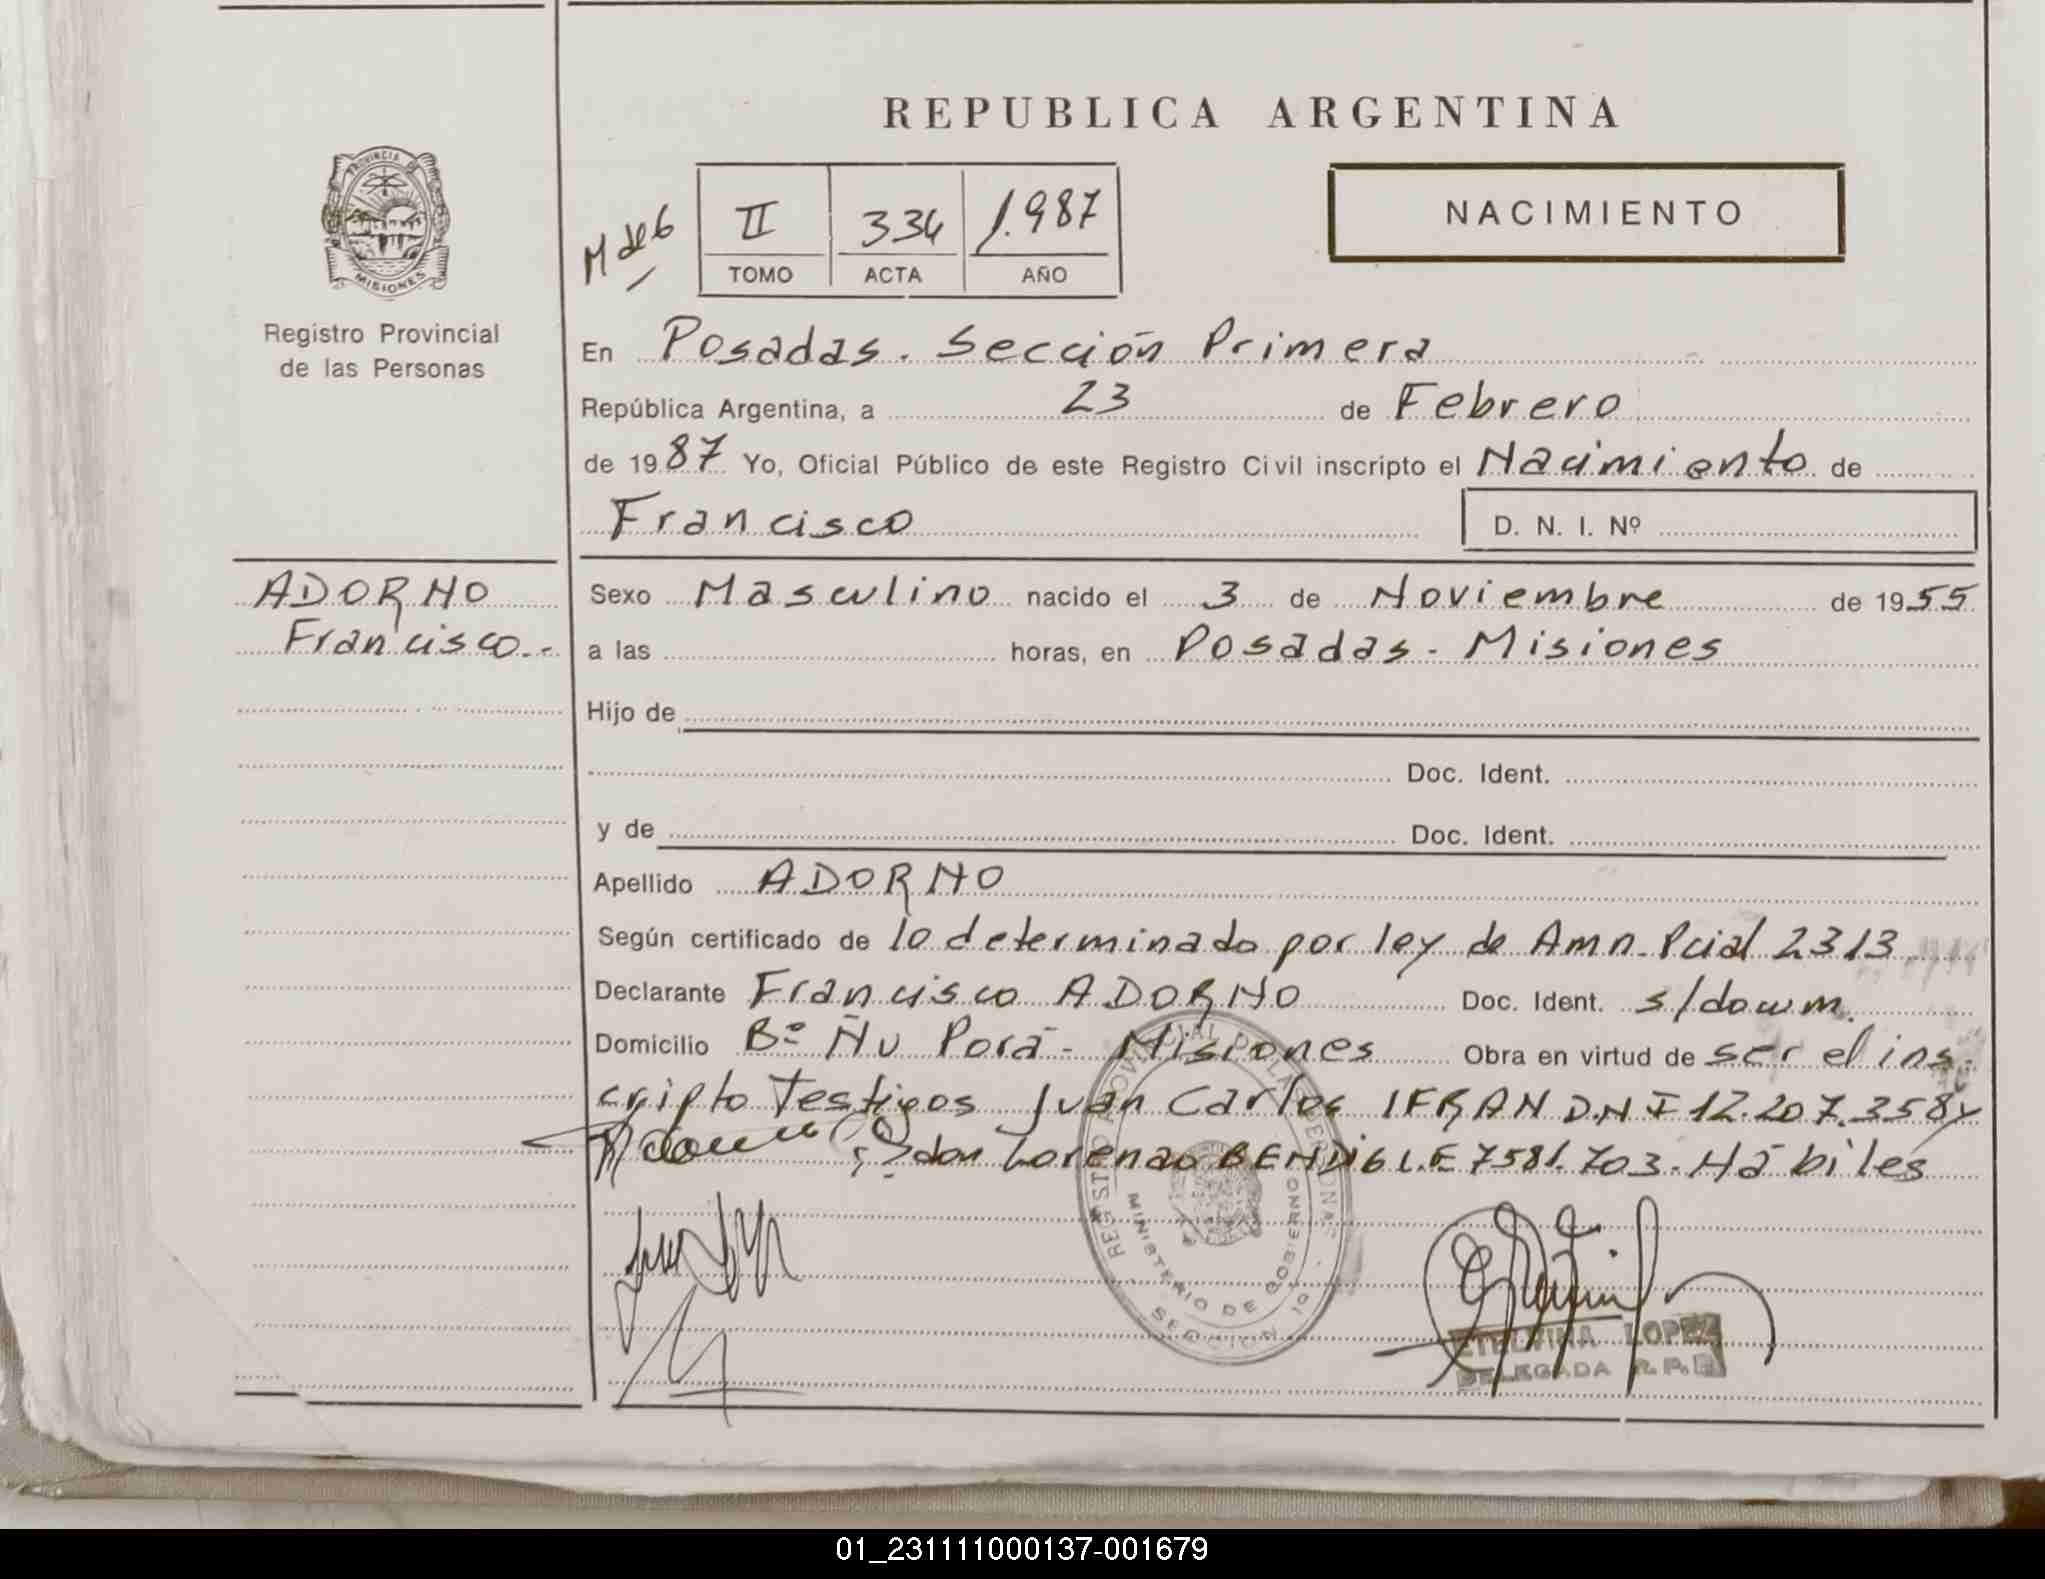 REPUBLICA ARGENTINA
PROVINCIA DE
MISIONES
Registro Provincial
de las Personas
M de 6
II 334 1.987
TOMO ACTA AÑO
NACIMIENTO
En Posadas. Sección Primera
República Argentina, a 23 de Febrero
de 1987 Yo, Oficial Público de este Registro Civil inscripto el Nacimiento de
Francisco D. N. I. Nº
ADORNO
Francisco.-
Sexo Masculino nacido el 3 de Noviembre de 1955
a las horas, en Posadas - Misiones
Hijo de
Doc. Ident.
y de Doc. Ident.
Apellido ADORNO
Según certificado de lo determinado por ley de Amn. Pcial 2313
Declarante Francisco ADORNO Doc. Ident. s/docum.
Domicilio Bº Ñu Porá - Misiones Obra en virtud de ser el ins-
cripto Testigos Juan Carlos IFRAN D.N.I 12.207.358 y
don Lorenzo L.E 7581.703. Hábiles
REGISTRO PROVINCIAL DE LAS PERSONAS
MINISTERIO DE GOBIERNO
SECCION 1º
ETELVINA LOPEZ
DELEGADA R.P.P.
01_231111000137-001679